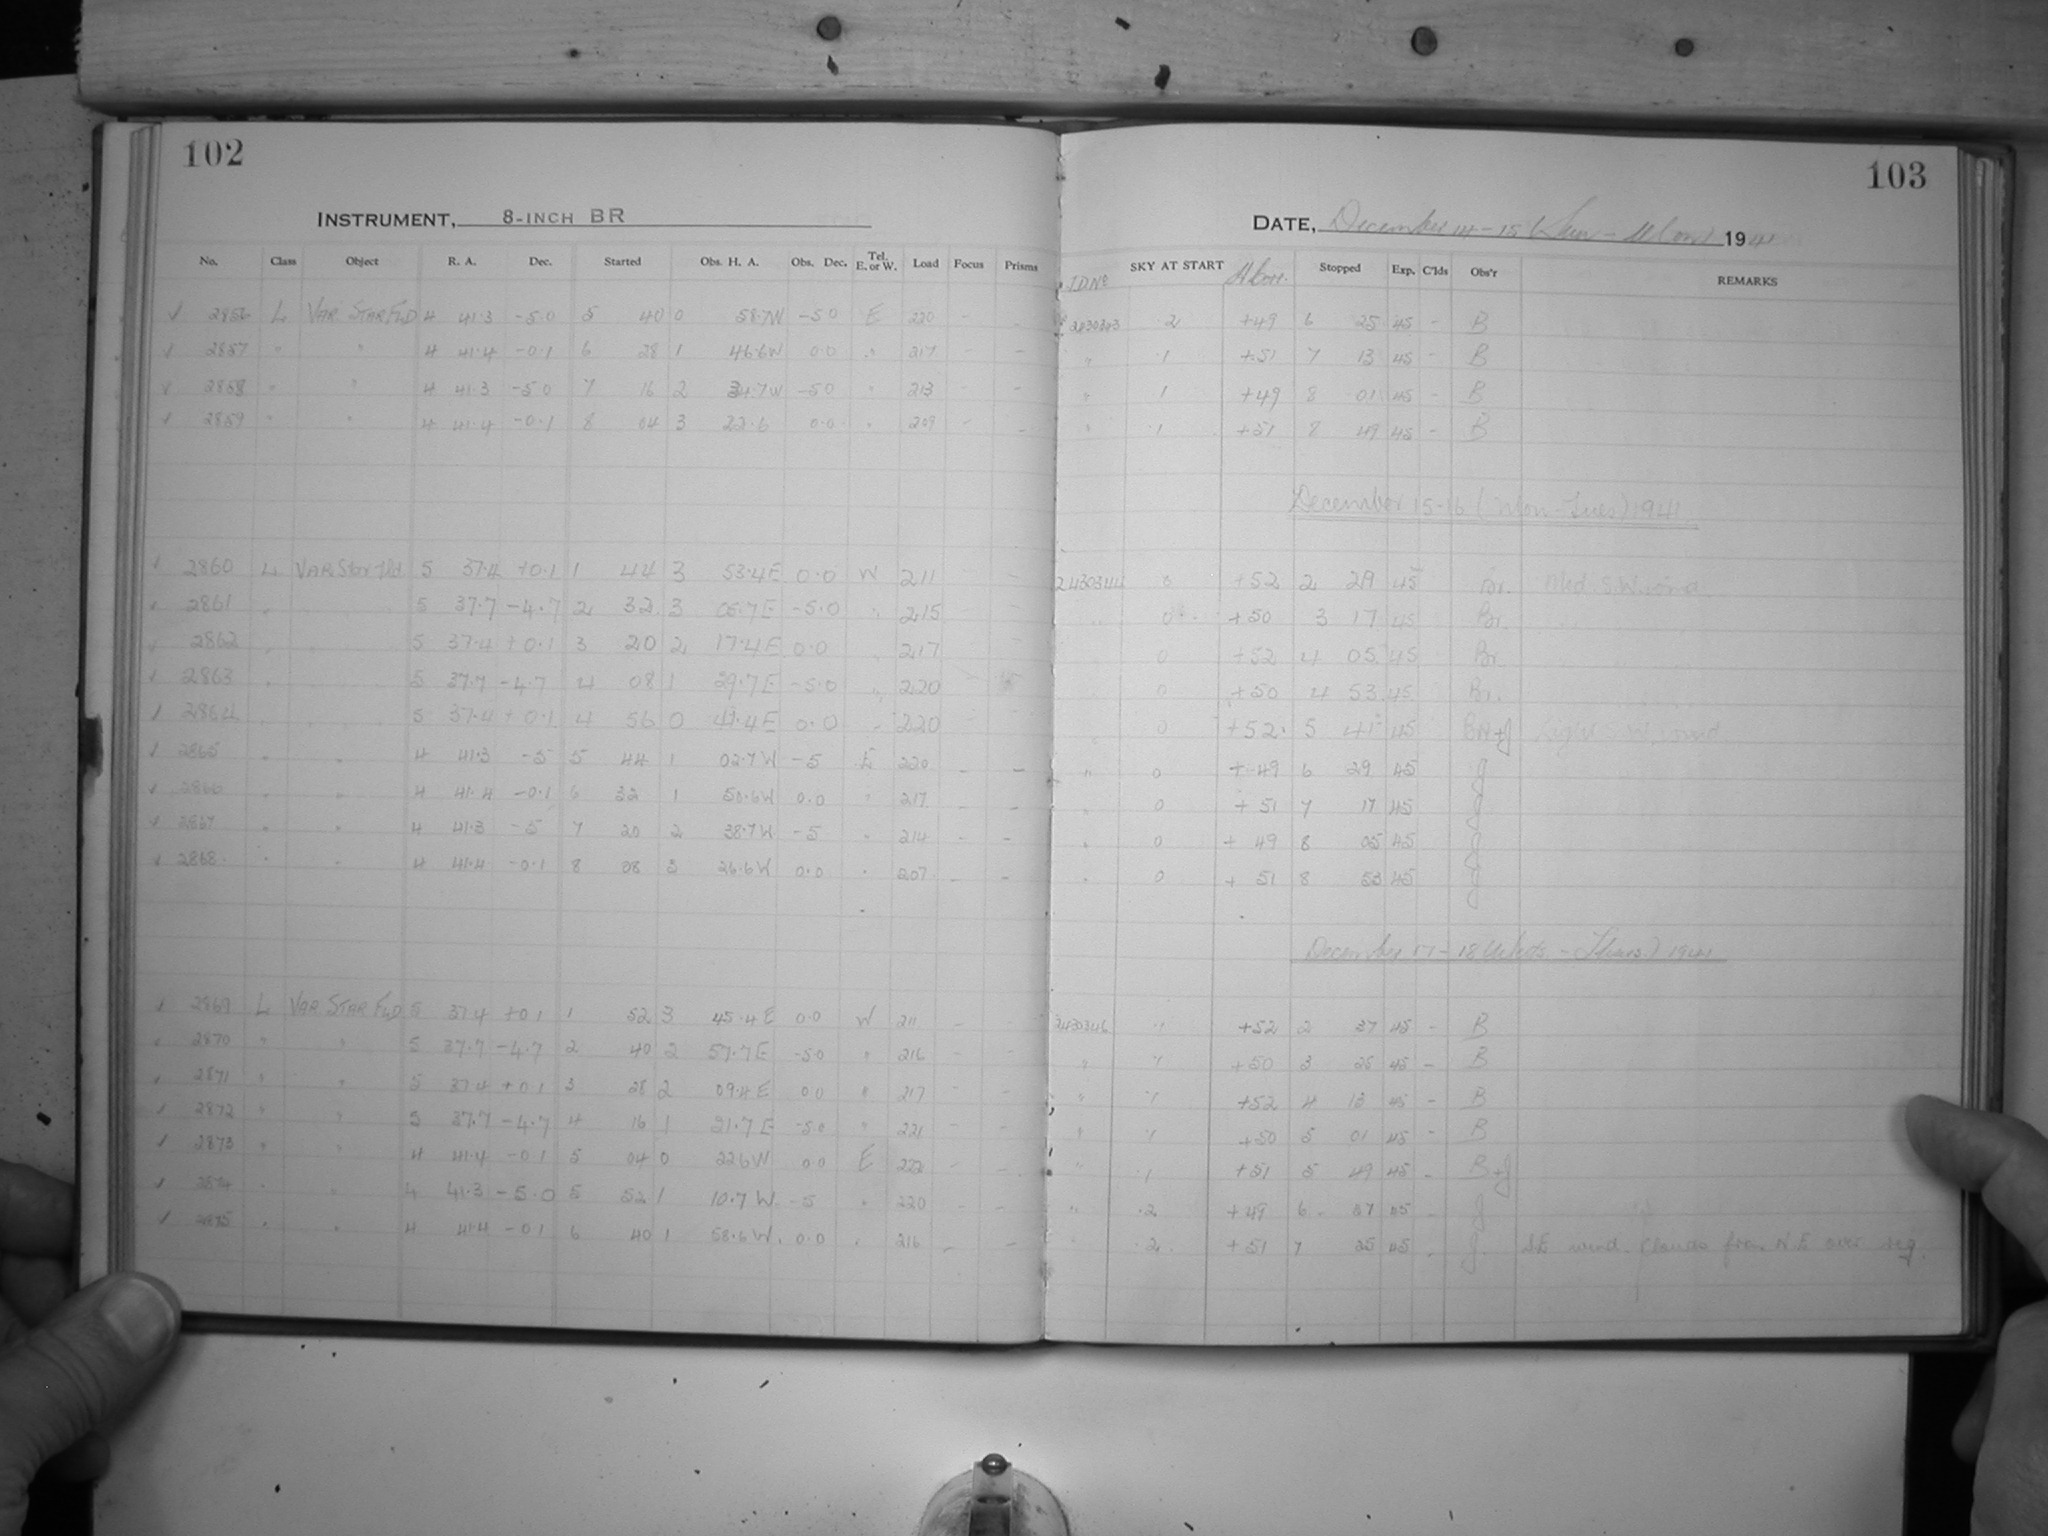 102
INSTRUMENT, 8-INCH BR
No. Class Object R. A. Dec. Started Obs. H. A. Obs. Dec. Tel. E. or W. Load Focus Prisms
2856 L VAR STAR FLD 4 41.3 -5.0 5 40 0 58.7W -5.0 E 220 - -
2857 " " 4 41.4 -0.1 6 28 1 46.6W 0.0 " 217 - -
2858 " " 4 41.3 -5.0 7 16 2 34.7W -5.0 " 213 - -
2859 " " 4 41.4 -0.1 8 04 3 22.6 0.0 " 209 - -
2860 L VAR Star Fld 5 37.4 +0.1 1 44 3 53.4E 0.0 W 211
2861 " " 5 37.7 -4.7 2 32 3 05.7E -5.0 " 215
2862 " " 5 37.4 +0.1 3 20 2 17.4E 0.0 " 217
2863 " " 5 37.7 -4.7 4 08 1 29.7E -5.0 " 220
2864 " " 5 37.4 +0.1 4 56 0 41.4E 0.0 " 220
2865 " " 4 41.3 -5 5 44 1 02.7W -5 E 220 - -
2866 " " 4 41.4 -0.1 6 32 1 50.6W 0.0 " 217 - -
2867 " " 4 41.3 -5 7 20 2 38.7W -5 " 214 - -
2868 " " 4 41.4 -0.1 8 08 3 26.6W 0.0 " 207 - -
2869 L VAR STAR FLD 5 37.4 +0.1 1 52 3 45.4E 0.0 W 211 - -
2870 " " 5 37.7 -4.7 2 40 2 57.7E -5.0 " 216 - -
2871 " " 5 37.4 +0.1 3 28 2 09.4E 0.0 " 217 - -
2872 " " 5 37.7 -4.7 4 16 1 21.7E -5.0 " 221 - -
2873 " " 4 41.4 -0.1 5 04 0 22.6W 0.0 E 222 - -
2874 " " 4 41.3 -5.0 5 52 1 10.7W -5 " 220 - -
2875 " " 4 41.4 -0.1 6 40 1 58.6W 0.0 " 216 - -
103
DATE, December 14-15 (Sun-Mon) 1941
J.D. No SKY AT START Stopped Exp. C'lds Obs'r REMARKS
2430343 .2 +49 6 25 45 - B
" .1 +51 7 13 45 - B
" 1 +49 8 01 45 - B
" .1 +51 8 49 45 - B
December 15-16 (Mon-Tues) 1941
2430344 0 +52 2 29 45 Br. Med. S.W. wind
" 0 +50 3 17 45 Br.
" 0 +52 4 05 45 Br.
" 0 +50 4 53 45 Br.
" 0 +52 5 41 45 Br+J Light S.W. wind
" 0 +49 6 29 45 J
" 0 +51 7 17 45 J
" 0 +49 8 05 45 J
" 0 +51 8 53 45 J
December 17-18 (Weds-Thurs) 1941
2430346 .1 +52 2 37 45 - B
" .1 +50 3 25 45 - B
" .1 +52 4 13 45 - B
" .1 +50 5 01 45 - B
" .1 +51 5 49 45 - B+J
" .2 +49 6 37 45 - J
" .2 +51 7 25 45 - J SE wind. Clouds from N.E over reg.